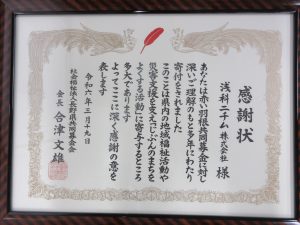 感謝状
浅科ニチム株式会社 様
あなたは赤い羽根共同募金に対し
深いご理解のもと多年にわたり
寄付をされました
このことは県内の地域福祉活動や
災害支援を支え「じぶんのまちを
よくする活動」に寄与するところ
多大であります
よってここに深く感謝の意を
表します
令和六年三月十九日
社会福祉法人長野県共同募金会
会長 合津文雄